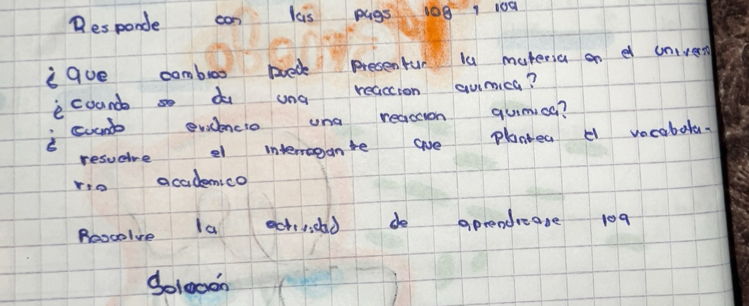 Responde con las pags 108 y 109
¿Que cambios puede Presentar la materia en el univers
¿cuando se da una reaccion quimica?
¿cuando evidencio una reaccion quimica?
resuelve el interrogante que plantea el vocabula-
rio academico
Resuelve la actividad de aprendizaje 109
Solución